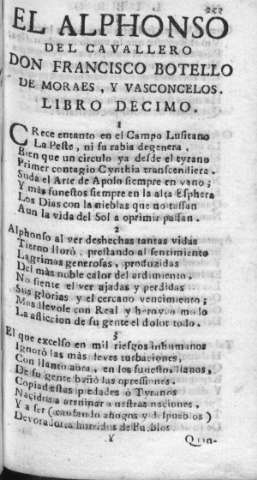 EL ALPHONSO
DEL CAVALLERO
DON FRANCISCO BOTELLO
DE MORAES, Y VASCONCELOS.
LIBRO DECIMO.
1
CRece entanto en el Campo Lusitano
La Peste, ni su rabia degenera.
Bien que un circulo ya desde el tyrano
Primer contagio Cynthia transcendiera.
Suda el Arte de Apolo siempre en vano;
Y màs funestos siempre en la alta Esphera
Los Dias con la nieblas que no
Aun la vida del Sol a oprimir passan.
2
Alphonso al ver deshechas tantas vidas
Tierno lloró, prestando al sentimiento
Lagrimas generosas, produzidas
Del màs noble calor del ardimiento.
No siente el ver ajadas y perdidas
Sus glorias y el cercano vencimiento;
Mas le vole con Real y heroyco
La afliccion de su gente el dolor todo.
3
El que excelso en mil riesgos inhumanos
Ignoró las màs leves turbaciones,
Con llanto aora, en los funestos llanos,
De su gente bañó las opressiones.
Copiad estas piedades ò Tyranos
Nacidos a arruinar a vestras naciones,
Y a ser (
Devoradores horridos de Pueblos.
Y
Quan-